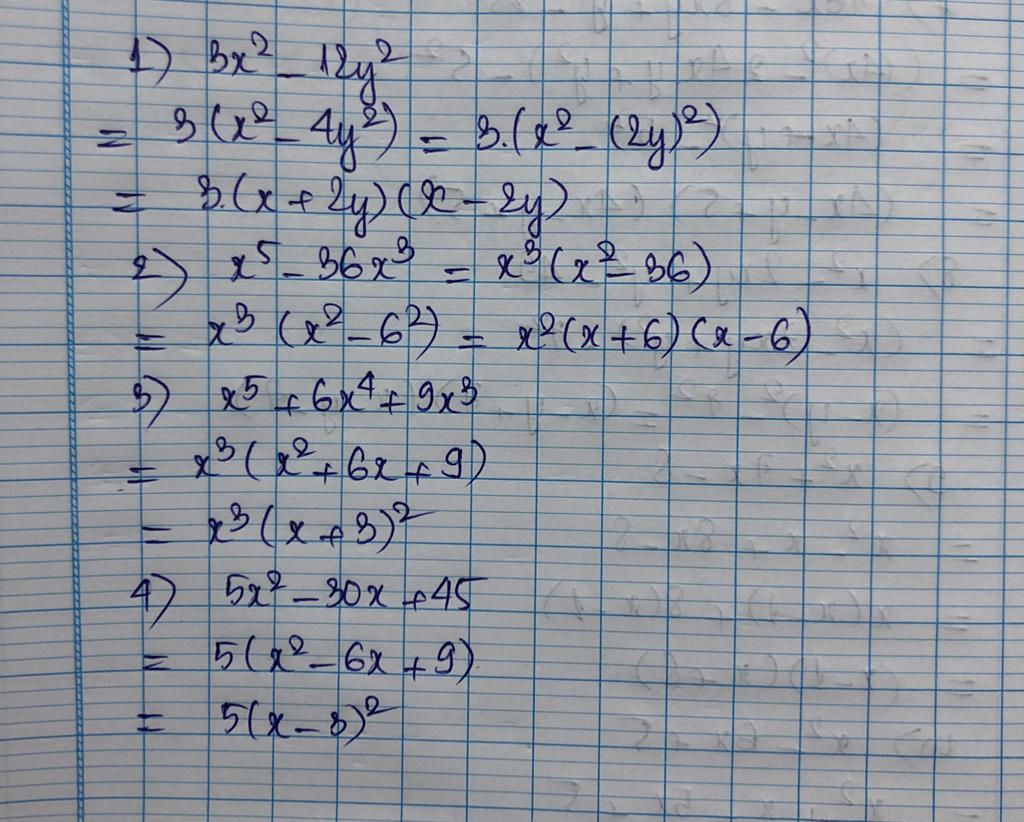 1) 3x² - 12y²
= 3(x² - 4y²) = 3.(x² - (2y)²)
= 3.(x + 2y)(x - 2y)
2) x⁵ - 36x³ = x³(x² - 36)
= x³ (x² - 6²) = x²(x + 6)(x - 6)
3) x⁵ + 6x⁴ + 9x³
= x³(x² + 6x + 9)
= x³(x + 3)²
4) 5x² - 30x + 45
= 5(x² - 6x + 9)
= 5(x - 3)²